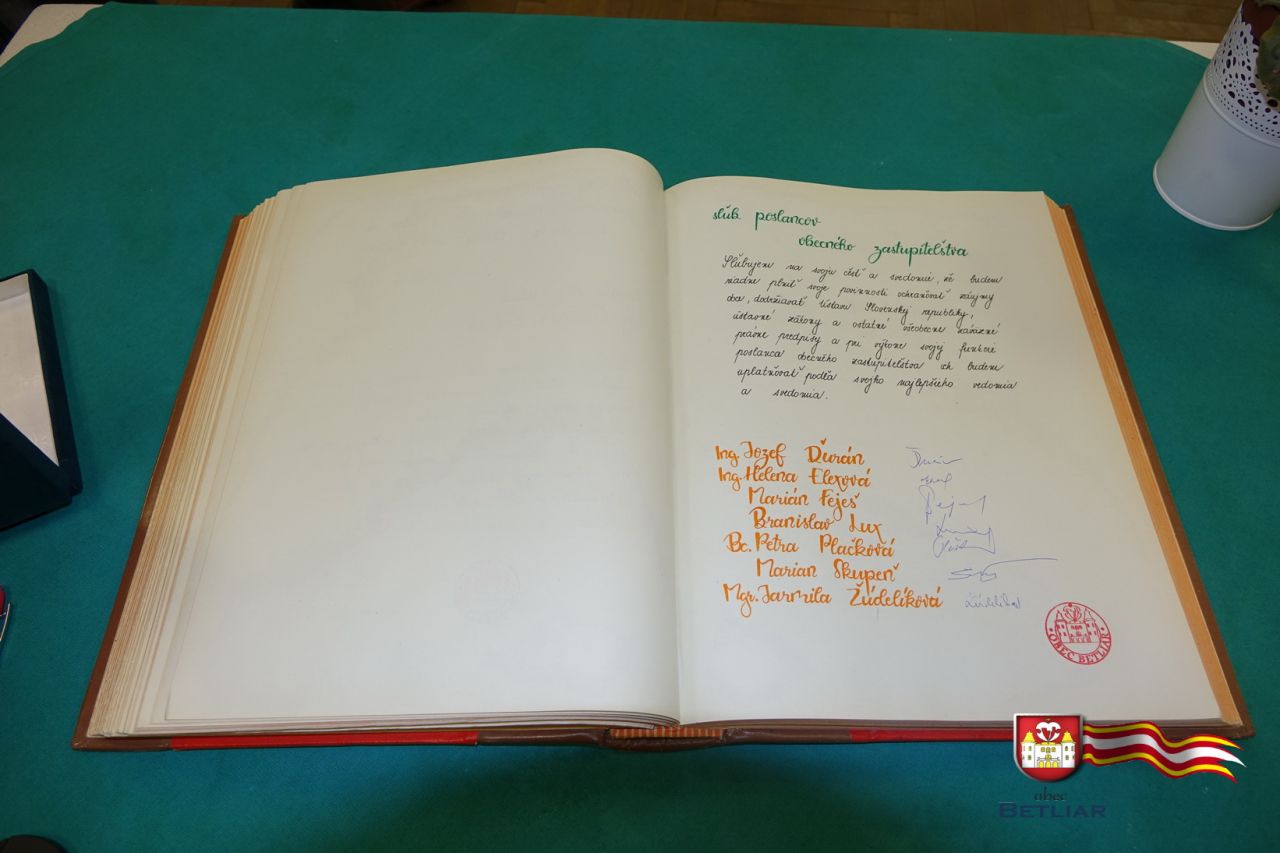 sľub poslancov
obecného zastupiteľstva
Sľubujem na svoju česť a svedomie, že budem
riadne plniť svoje povinnosti ochraňovať záujmy
obce, dodržiavať Ústavu Slovenskej republiky,
ústavné zákony a ostatné všeobecne záväzné
právne predpisy a pri výkone svojej funkcie
poslanca obecného zastupiteľstva ich budem
uplatňovať podľa svojho najlepšieho vedomia
a svedomia.
Ing. Jozef Ďurán
Ing. Helena Elexová
Marián Feješ
Branislav Lux
Bc. Petra Plačková
Marian Skupeň
Mgr. Jarmila Žúdelíková
OBEC BETLIAR
obec
BETLIAR